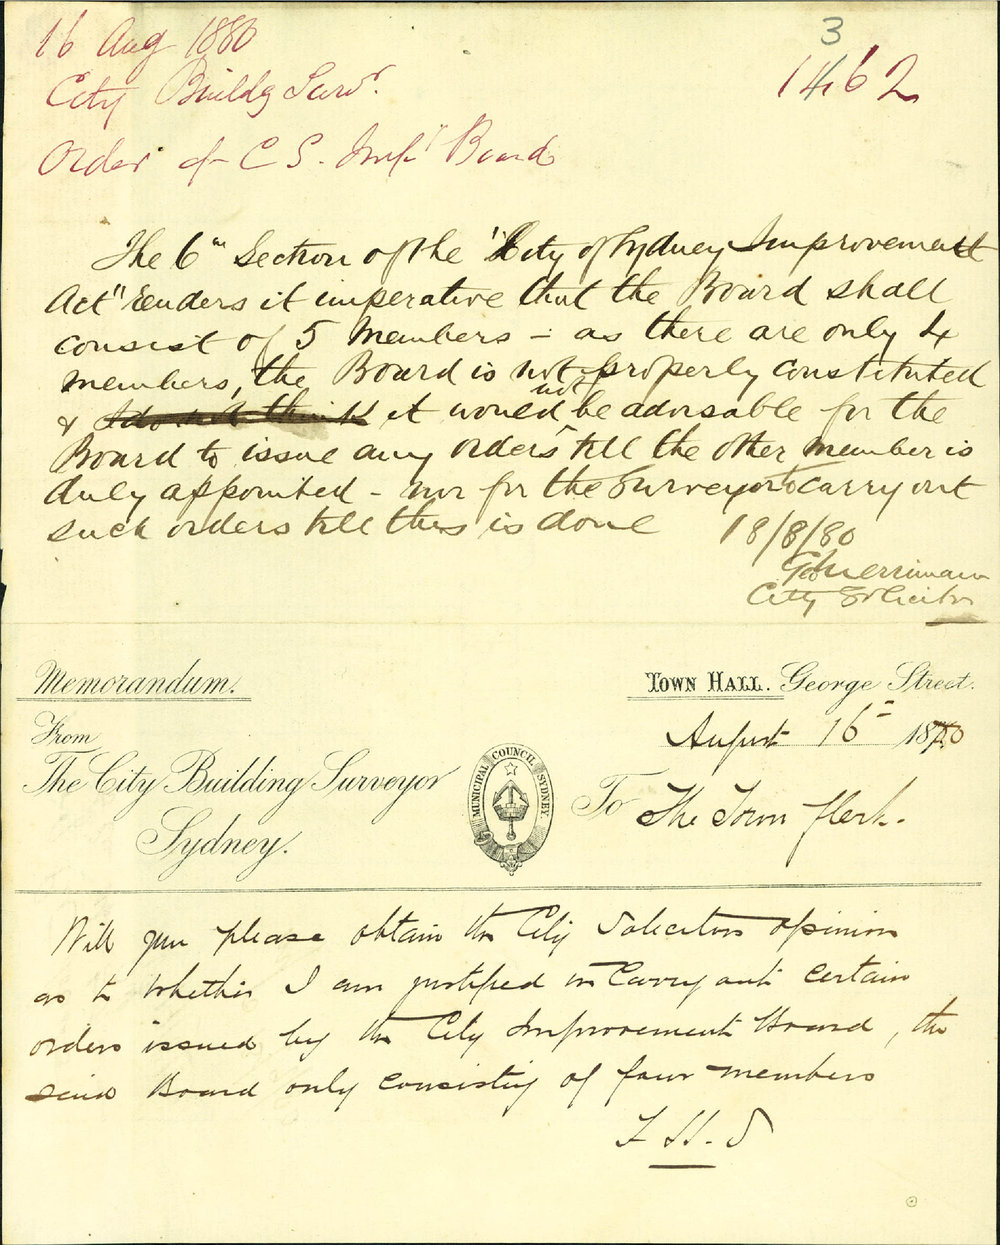 16 Aug 1880
3
1462
City Buildg Survr.
Order of C S. Imp't Board
The 6th Section of the "City of Sydney Improvement
Act" renders it imperative that the Board shall
consist of 5 Members - as there are only 4
members, the Board is not properly constituted
& I do not think it would not be advisable for the
Board to issue any orders till the other member is
duly appointed - nor for the Surveyor to carry out
such orders till this is done
18/8/80
Geo Merriman
City Solicitor
Memorandum.
Town Hall. George Street.
From
August 16th 1880
The City Building Surveyor
Sydney.
MUNICIPAL COUNCIL SYDNEY
To The Town Clerk.
Will you please obtain the City Solicitors opinion
as to whether I am justified in carrying out certain
orders issued by the City Improvement Board, the
said Board only consisting of four members